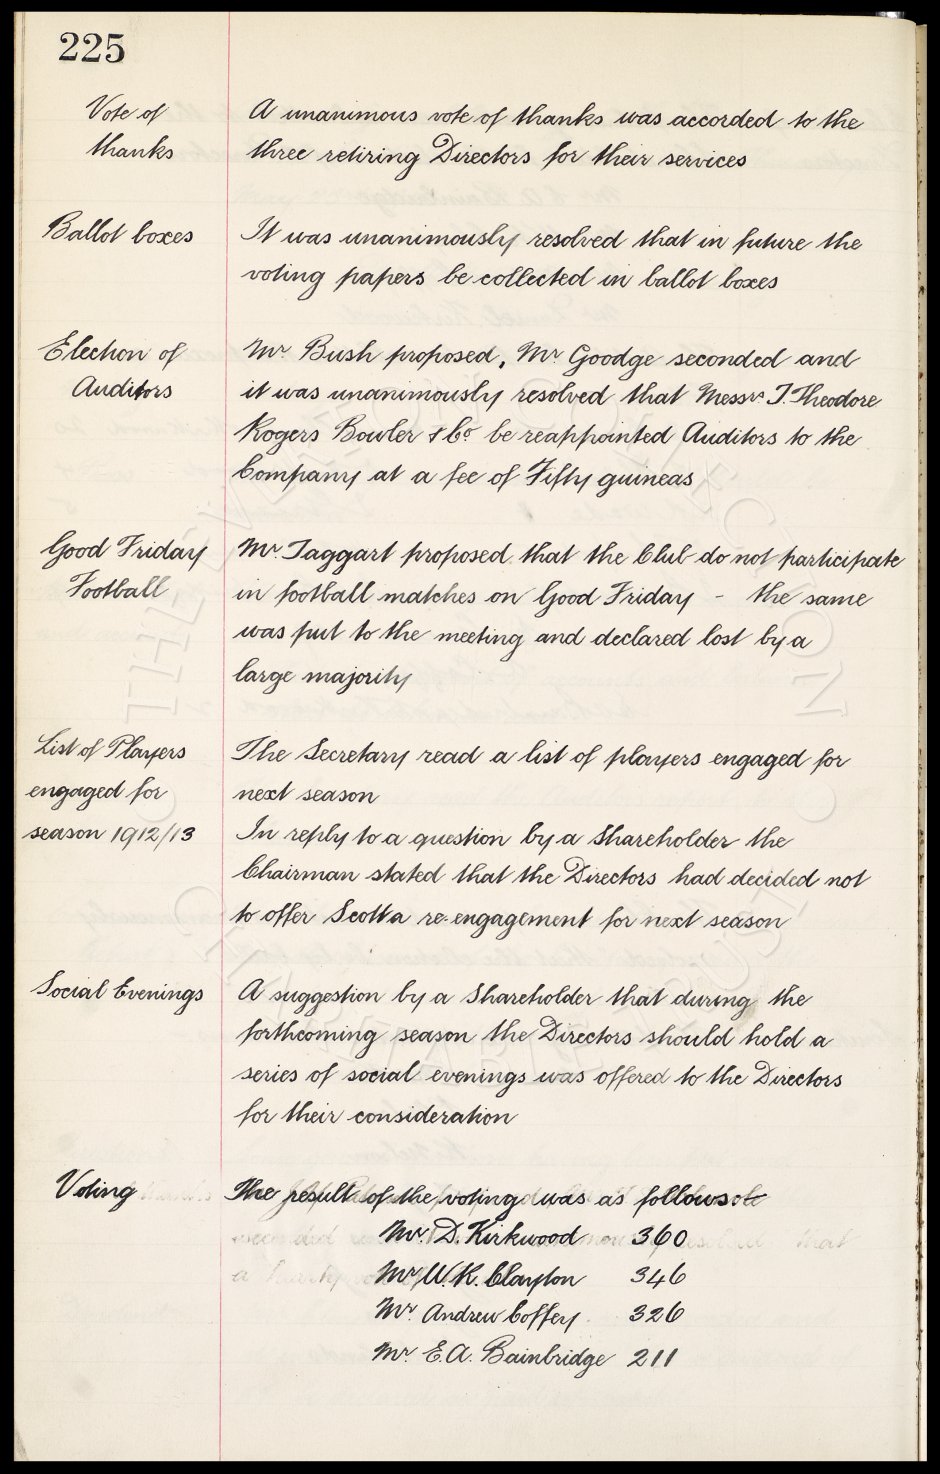 225
Vote of
thanks
A unanimous vote of thanks was accorded to the
three retiring Directors for their services
Ballot boxes
It was unanimously resolved that in future the
voting papers be collected in ballot boxes
Election of
Auditors
Mr Bush proposed, Mr Goodge seconded and
it was unanimously resolved that Messrs T. Theodore
Rogers Bowler & Co be reappointed Auditors to the
Company at a fee of Fifty guineas
Good Friday
Football
Mr. Taggart proposed that the Club do not participate
in football matches on Good Friday - the same
was put to the meeting and declared lost by a
large majority
List of Players
engaged for
season 1912/13
The Secretary read a list of players engaged for
next season
In reply to a question by a Shareholder the
Chairman stated that the Directors had decided not
to offer Scott a re-engagement for next season
Social Evenings
A suggestion by a Shareholder that during the
forthcoming season the Directors should hold a
series of social evenings was offered to the Directors
for their consideration
Voting
The result of the voting was as follows:-
Mr. D. Kirkwood 360
Mr W. R. Clayton 346
Mr Andrew Coffey 326
Mr. E. A. Bainbridge 211